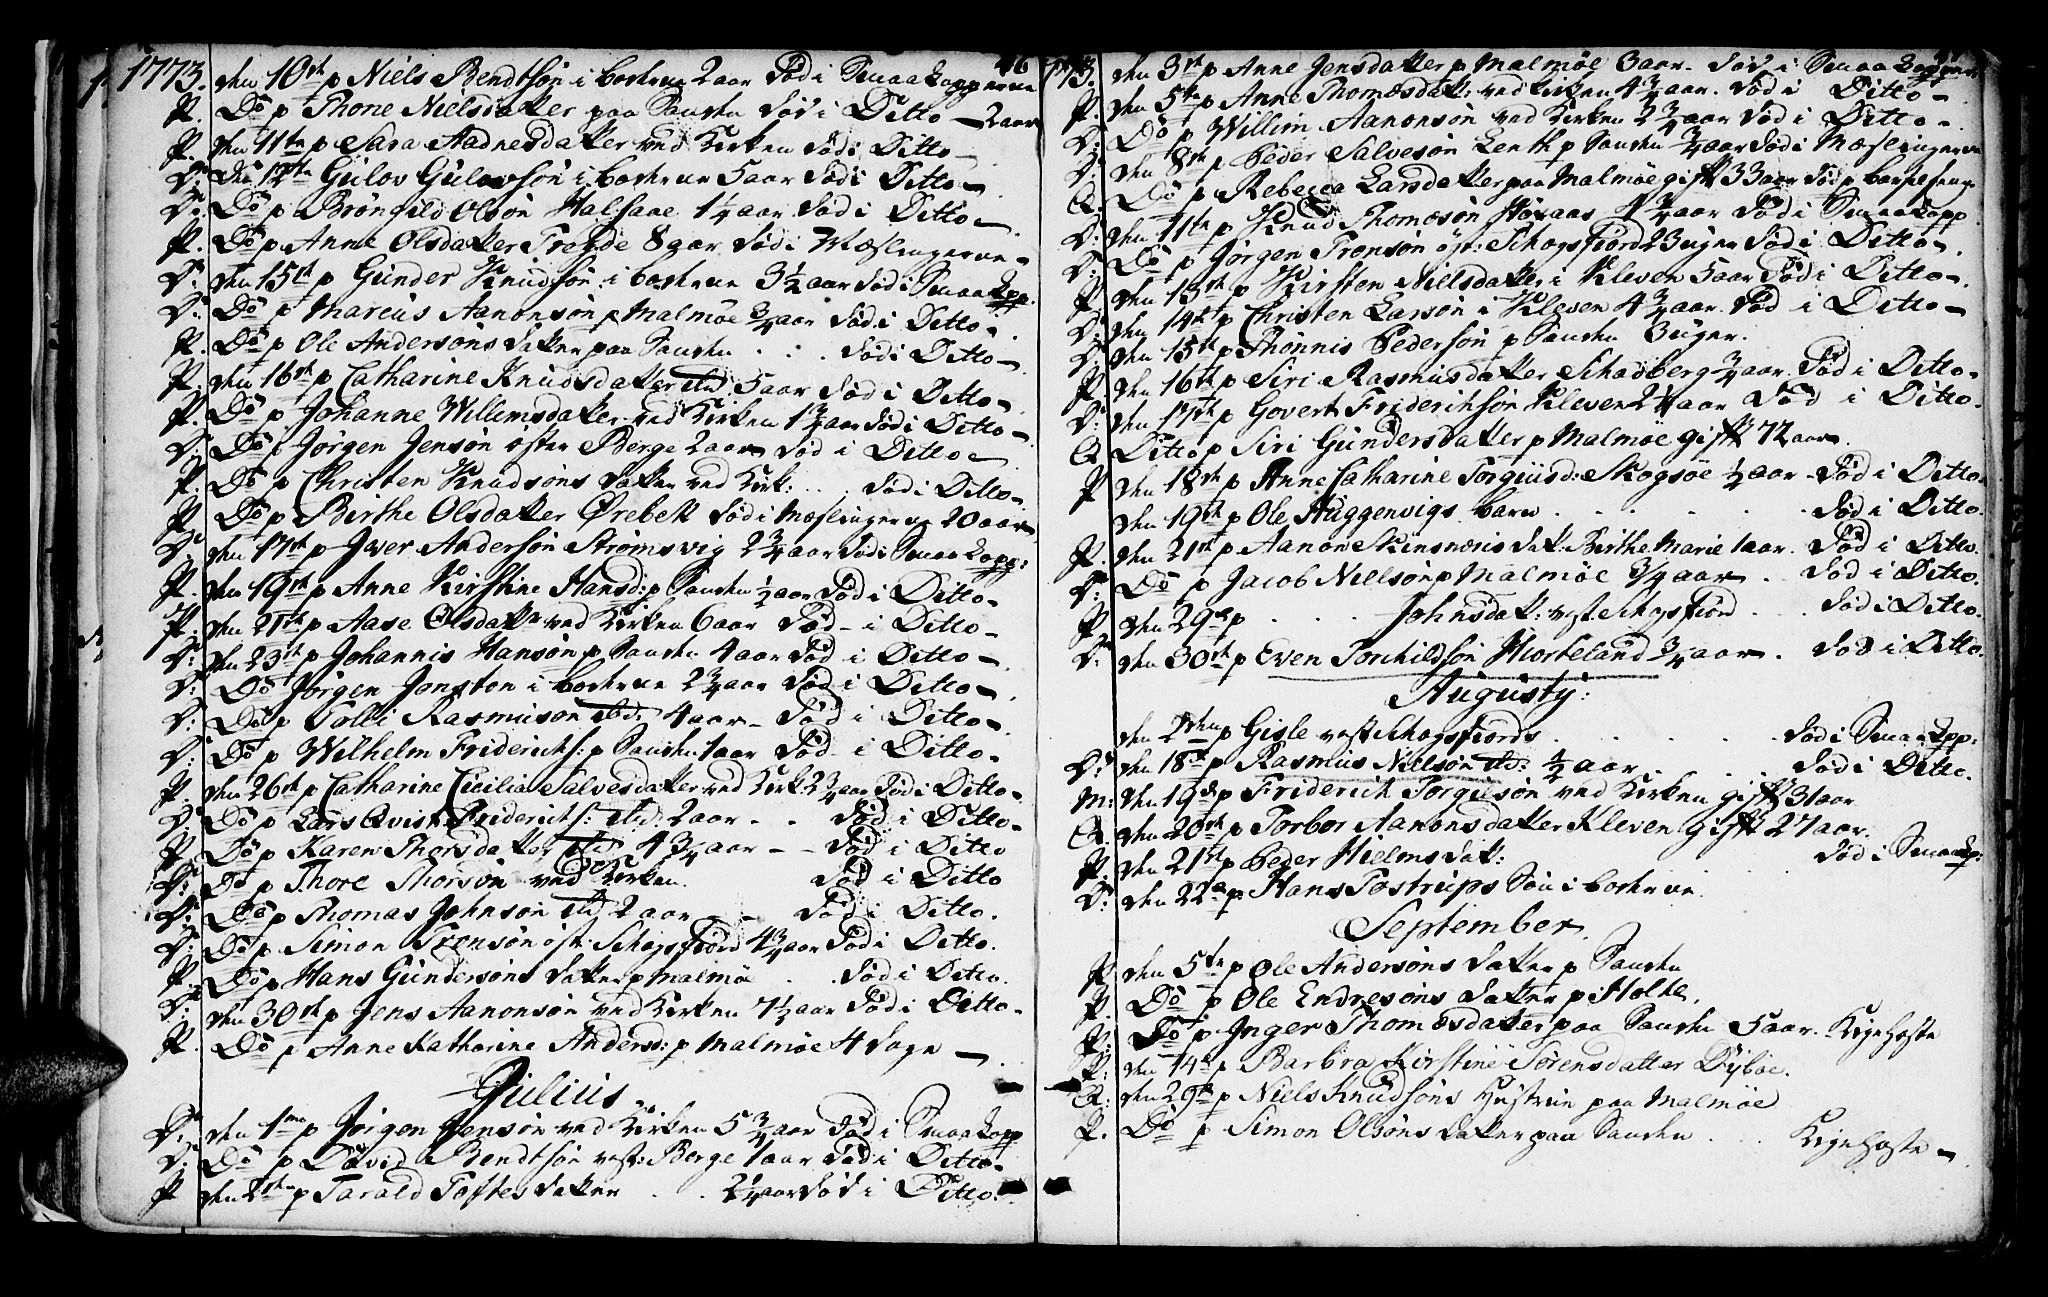 1773. den 10de p Niels Bendtsøn i bechene 2 aar Død i Smaa Kopperne 46
P. Do p Thone Nielsdatter paa Sanden Død i Ditto 2 aar
P. den 11te p Sara Aadnesdatter ved Kirken Død i Ditto
D: den 12te Gulov Gulovsøn i 5 aar Død i Ditto
D: Do p Brøngild Olsøn Halsaae 1 1/4 aar Død i Ditto
P. Do p Anne Olsdatter Fronde 8 aar Død i Mæslingerne
D: den 15de p Gunder Knudsøn i 3 1/2 aar Død i Smaa Kopp.
D: Do p Marcus Aanonsøn p Malmøe 3/4 aar Død i Ditto
P. Do p Ole Andersøns datter paa Sanden . . . Død i Ditto
P. den 16de p Catharine Knudsdatter ibd 5 aar Død i Ditto
P. Do p Johanne Willemsdatter ved Kirken 1 3/4 aar Død i Ditto
D: Do p Jørgen Jensøn øster Berge 2 aar Død i Ditto
P. Do p Christen Knudsøns datter ved Kirk: . . . Død i Ditto
P. Do p Birthe Olsdatter Ørebek Død i Mæslingerne 20 aar
D: den 17de p Iver Andersøn Strømsvig 2 3/4 aar Død i Smaa Kopp:
P. den 19de p Anne Kirstine Hansd: p Sanden 1/2 aar Død i Ditto
P. den 21de p Aase Olsdatter ved Kirken 6 aar Død i Ditto
D: den 23de p Johannis Hansøn p Sanden 4 aar Død i Ditto
D: Do Jørgen Jonston i 2 3/4 aar Død i Ditto
D: Do p Salli Rasmusøn ibd: 4 aar Død i Ditto
D: Do p Wilhelm Friderichs: p Sanden 1 aar Død i Ditto
P. den 26de p Catharine Cicilia Salvesdatter ved Kirk 2 3/4 aar Død i Ditto
D: Do p Lars Qvist Friderichs: ibd. 2 aar - - Død i Ditto
P. Do p Karen Thorsdatter ibd 4 3/4 aar - - Død i Ditto
D: Do p Thore Thorsøn ved Kirken. Død i Ditto
D: Do p Thomas Johnsøn ibd 2 aar - - Død i Ditto.
D: Do p Simon Tronsøn øst: Schogsfiord 4 3/4 aar Død i Ditto.
P. Do p Hans Gundersøns datter p Malmø . . Død i Ditto.
D: den 30de p Jens Aanonsøn ved Kirken 7 1/2 aar Død i Ditto
P. Do p Anne Katharine Andersd: p Malmøe 4 dage
Julius
D: den 1me p Jørgen Jensøn ved Kirken 5 3/4 aar Død i Smaa Kopp
D: Do p David Bendtsøn vest: Berge 1 aar Død i Ditto
P den 2den p Tarald Toftes datter . . 2 1/4 aar Død i Ditto.
1773. den 3de p Anne Jensdatter p Malmøe 3 aar. Død i Smaa Kopperne
P. den 5te p Anne Thomesdat: ved Kirken 4 3/4 aar. Død i Ditto
D: Do p Willim Aanonsøn ved Kirken 2 3/4 aar Død i Ditto
D: den 8de p Peder Salvesøn Lenth p Sanden 3/4 aar Død i Mæslingerne
Q. Do p Rebecca Larsdatter paa Malmøe gift 33 aar Død p barselseng
D: den 11te p Knud Thomæsøn 4 3/4 aar Død i Smaa Kopp
D: Do p Jørgen Tronsøn øst: Schogsfiord 23 uger Død i Ditto
P. den 13de p Kirsten Nielsdatter i Kleven 5 aar Død i Ditto
D: den 14de p Christen Larsøn i Kleven 4 3/4 aar. Død i Ditto
D: den 15de p Thønnis Pedersøn p Sanden 3 uger.
P. den 16de p Siri Rasmusdatter Schadberg 3/4 aar. Død i Ditto
D: den 17de p Govert Friderichsøn Kleven 2 1/4 aar Død i Ditto.
Q Ditto p Siri Gundersdatter p Malmøe gift 72 aar.
P. den 18de p Anne Catharine Torgiusd: Skogsøe 1/2 aar - Død i Ditto
den 19de p Ole Huggenvigs barn . . . . . Død i Ditto.
P. den 21de p Aanon Skinsnæris dat: Birthe Marie 1 aar. Død i Ditto.
D: Do p Jacob Nielsøn p Malmøe 3/4 aar . . Død i Ditto.
P den 29de p . . . Johnsdat: vest Schogsfiord . . . Død i Ditto.
D: den 30de p Even Torchildsøn Hiorteland 3/4 aar . Død i Ditto.
Augusty:
den 2den p Gisle vest Schogsfiords . . . . . Død i Smaa Kopp:
D: den 18de p Rasmus Nielsøn ibd: 1/2 aar . . . Død i Ditto.
M: den 19de p Friderich Torgilsøn ved Kirken gift 31 aar
Q. den 20de p Torbor Aanonsdatter Kleven gift 27 aar.
P. den 21de p Peder Hielms dat: Død i Smaa Kp:
D: den 22de p Hans Tostrups Søn i
September.
P. den 5te p Ole Andersøns datter p Sanden
P. Do p Ole Endresøns datter p Holte.
P: Do p Inger Thomæsdatter paa Sanden 5 aar. Kigehoste
P: den 14de p Barbra Kirstine Sørensdatter Dyboe.
Q: den 29de p Niels Knudsøns Hustrue paa Malmøe
P. Do p Simon Olsøns datter paa Sanden . . Kigehoste